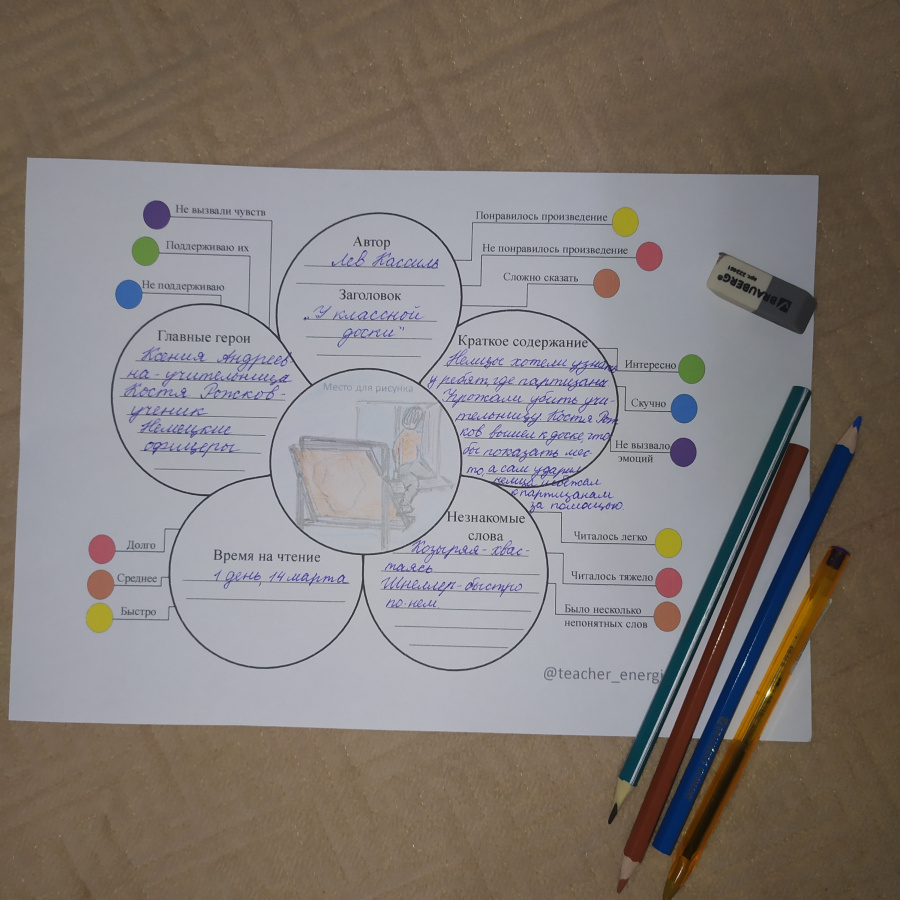 Не вызвали чувств
Поддерживаю их
Не поддерживаю
Понравилось произведение
Не понравилось произведение
Сложно сказать
Автор
Лев Кассиль
Заголовок
„У классной
доски"
Главные герои
Ксения Андреев
на-учительница
Костя Рожков-
ученик
Немецкие
офицеры
Краткое содержание
Немцы хотели узнать
у ребят где партизаны
Угрожали убить учи-
тельницу. Костя Рож
ков вышел к доске, что
бы показать мес-
то, а сам ударил
немца и
к партизанам
за помощью.
Интересно
Скучно
Не вызвало
эмоций
Место для рисунка
Время на чтение
1 день, 14 марта
Долго
Среднее
Быстро
Незнакомые
слова
Козыряя-хвас-
таясь
Шнеллер-быстро
по-нем.
Читалось легко
Читалось тяжело
Было несколько
непонятных слов
@teacher_energi
BRAUBERG®